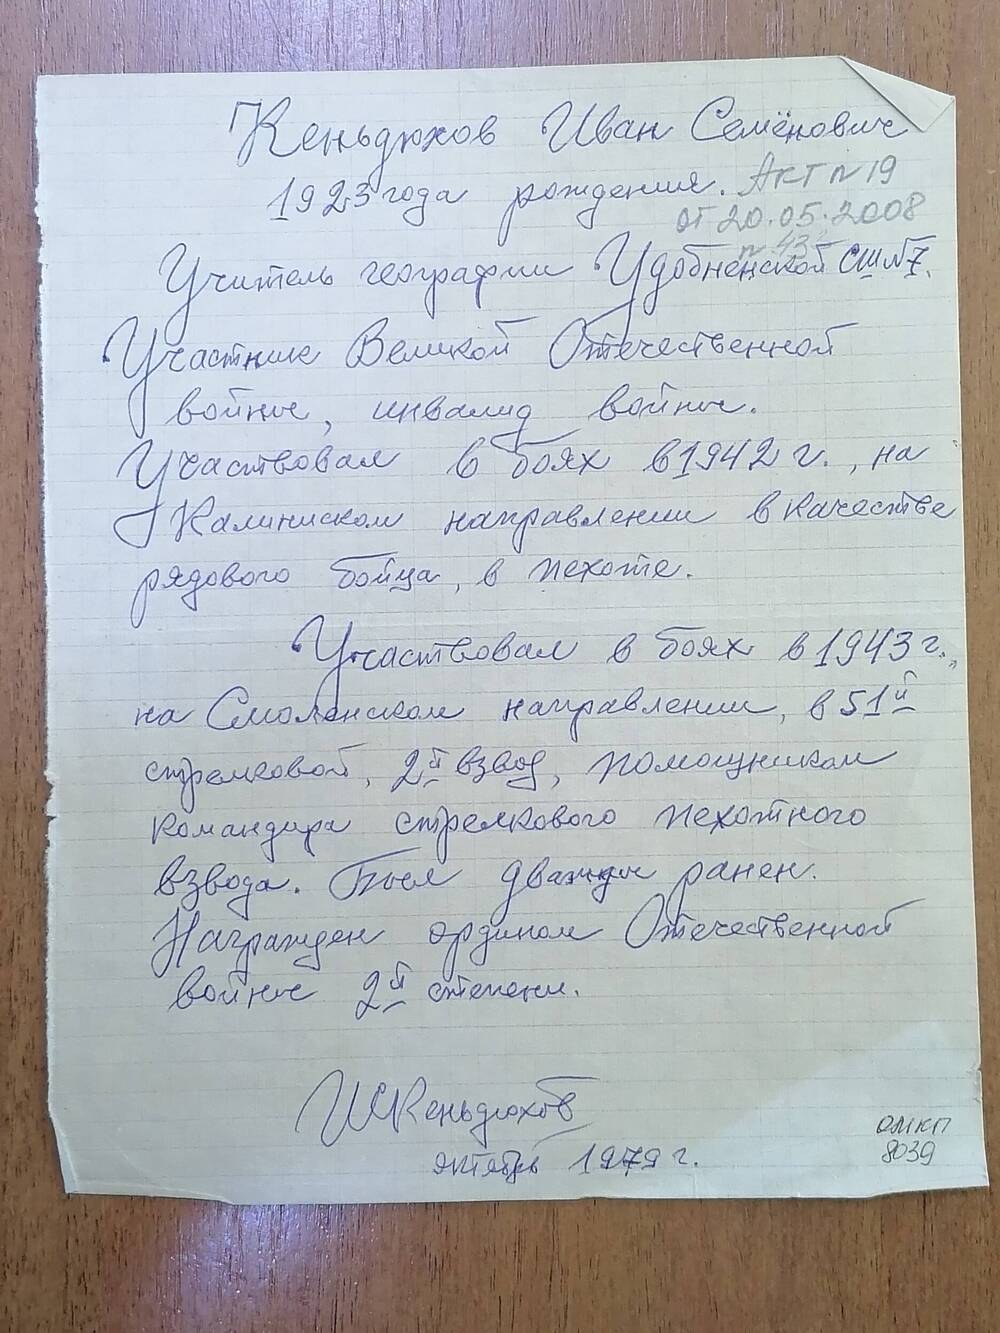 Кеньдюхов Иван Семёнович
1923 года рождения. Акт п 19
от 20.05.2008
п 43
Учитель географии Удобненской СШ№7.
Участник Великой Отечественной
войны, инвалид войны.
Участвовал в боях в 1942 г., на
Калиниском направлении в качестве
рядового бойца, в пехоте.
Участвовал в боях в 1943 г.,
на Смоленском направлении, в 51й
стрелковой, 2й взвод, помощником
командира стрелкового пехотного
взвода. Был дважды ранен.
Награжден ордином Отечественной
войны 2й степени.
ИСКеньдюхов
октябрь 1979 г.
ОМКП
8039